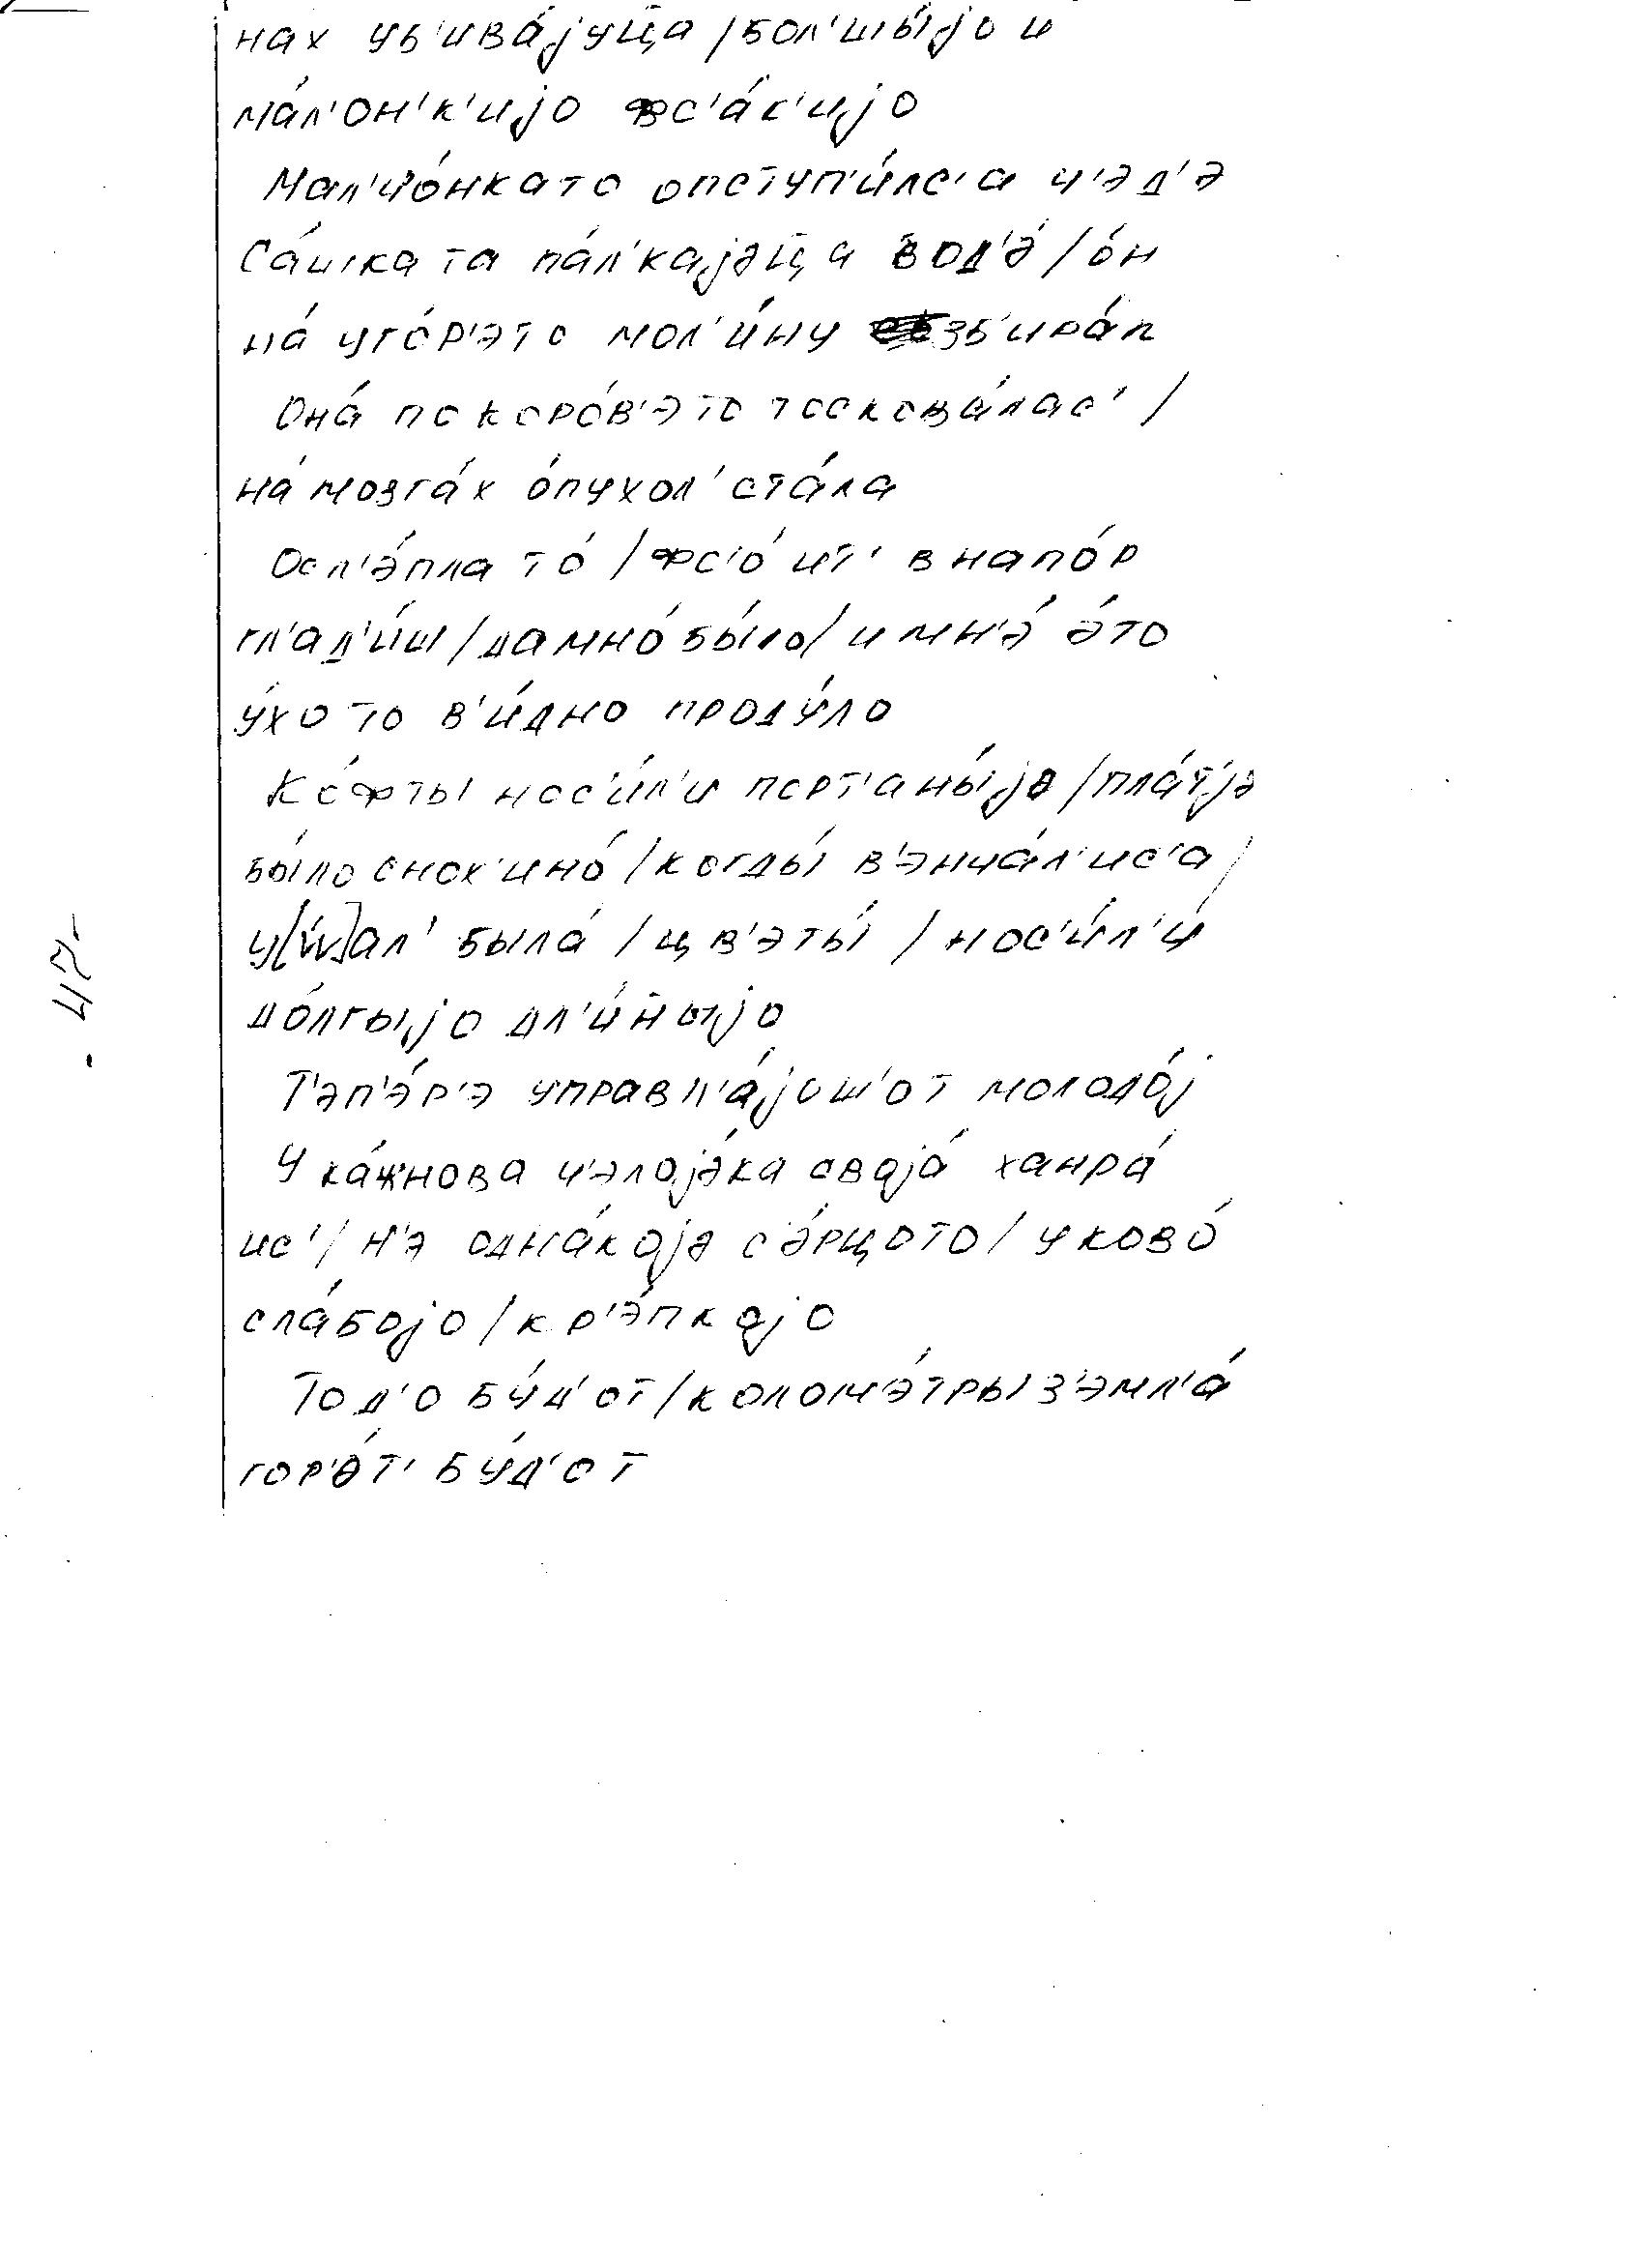 нах уб'ива́jуц̄а / бол'шы́jо и
ма́л'он'к'иjо фс'а́к'иjо
Мал'чо́нкато опступ'и́лс'а ч'эд'э
Са́шката па́л'каjэц̄а в̄од'э́ / о́н
на́ уго́р'это мол'и́ну зб'ира́л
Она́ покоро́в'это тоскова́лас' /
на́ мозга́х о́пухол' ста́ла
Осл'э́пла то́ / фс'о́ ит' в напо́р
гл'ад'и́ш / дамно́ бы́ло / и мн'э́ э́то
у́хо то в'и́дно проду́ло
Ко́фты нос'и́л'и порт'аны́jэ / пла́т̄jэ
бы́ло снох'ино́ / когды́ в'энча́л'ис'а /
у[w]ал' была́ / цв'эты́ / нос'и́л'и́
до́лгыjо дл'и́н̄ыjо
Т'эп'э́р'э управл'а́jош'от молодо́j
У ка́жнова ч'элоjэ́ка своjа́ ханра́
ис' / н'э одна́коjэ сэ́рцото / у ково́
сла́боjо / кр'э́пкоjо
То д'о бу́д'от / колом'э́тры з'эмл'а́
гор'э́т' бу́д'от
- 47-